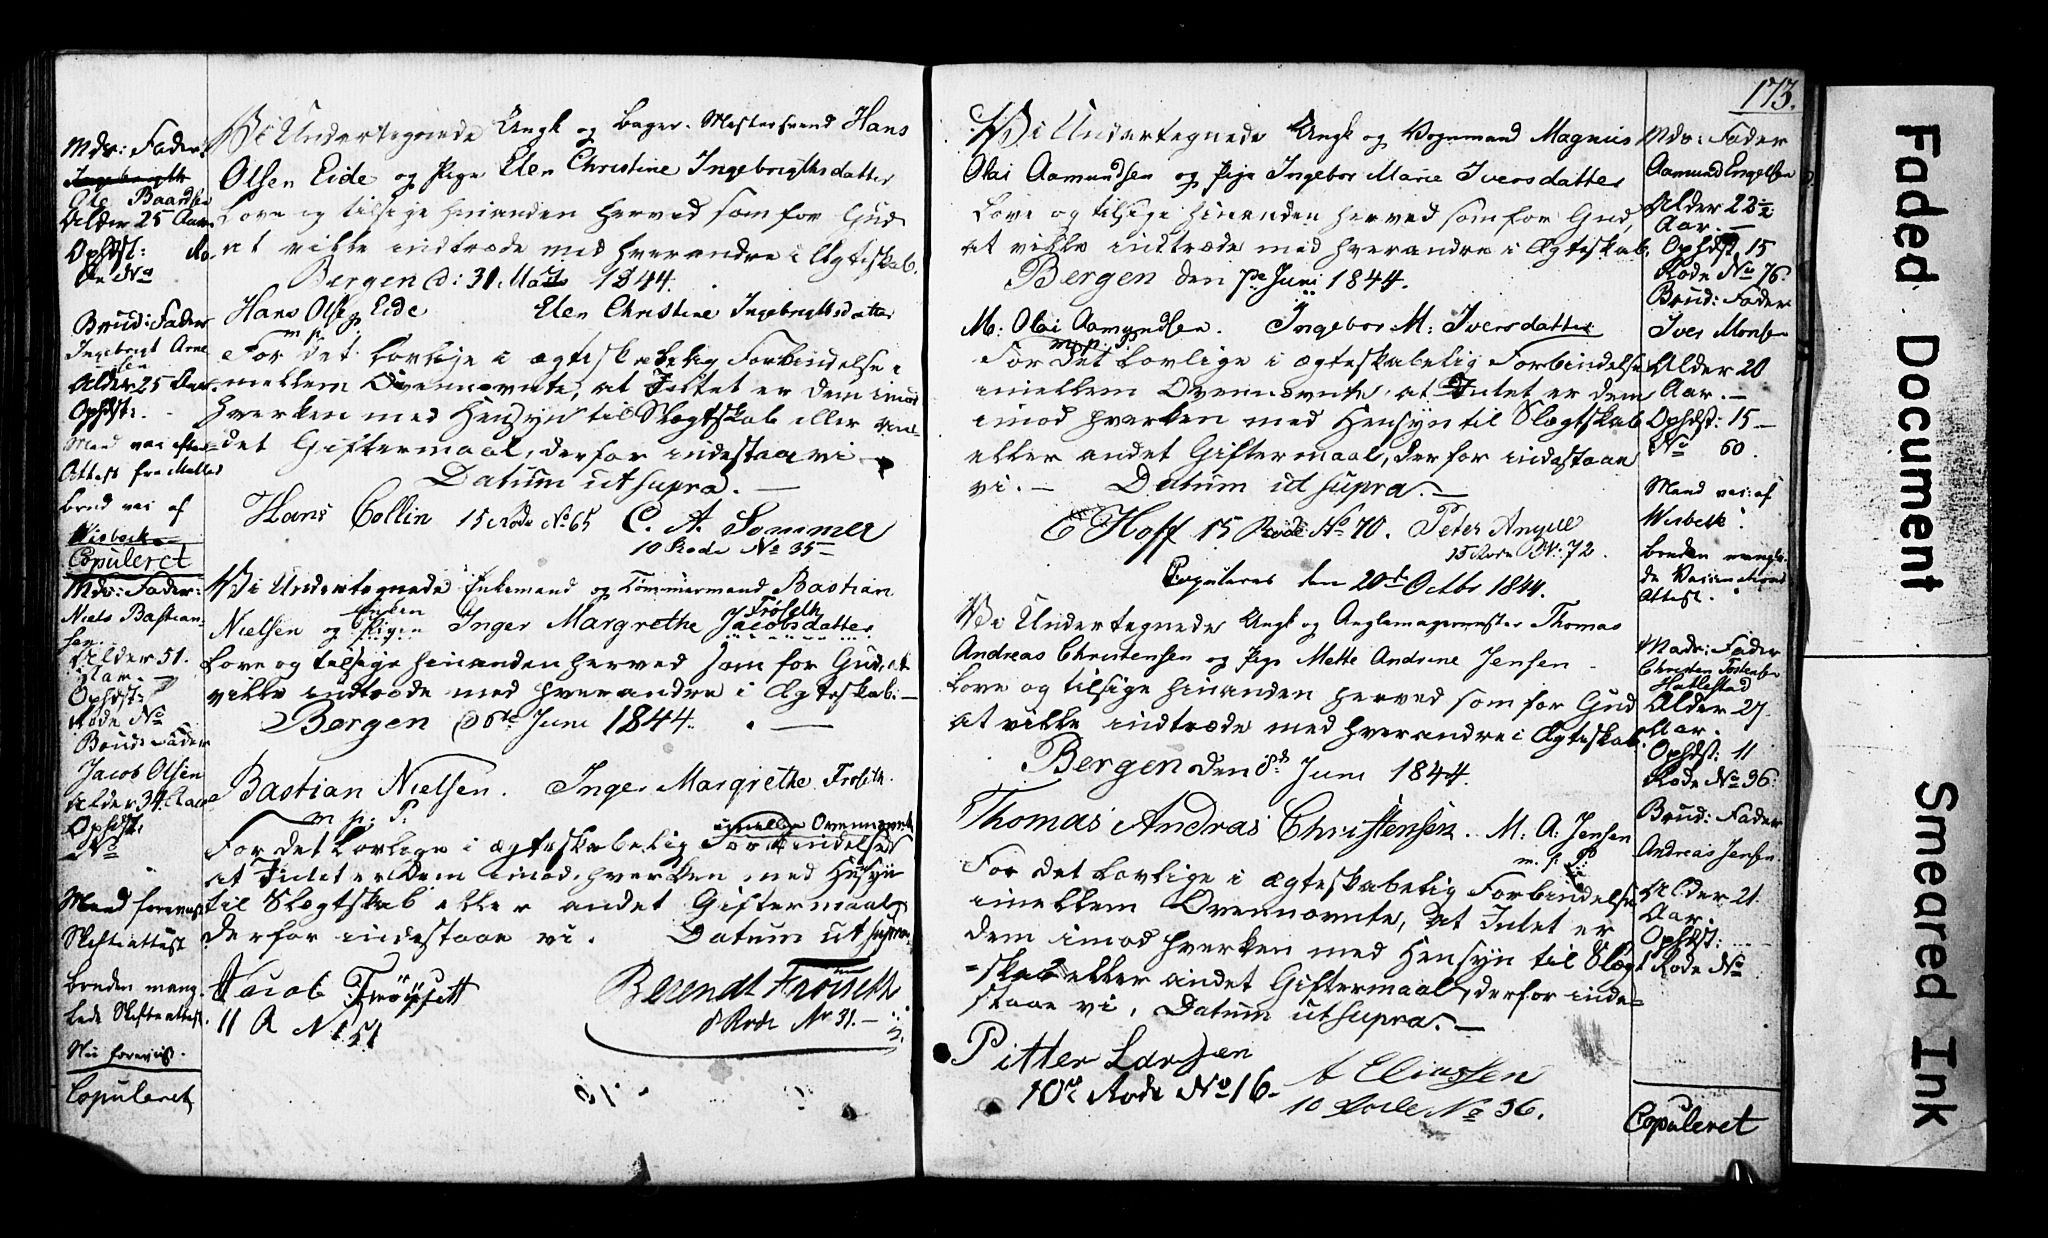 Mds: Fader:
Ole Baardsen
Alder 25 Aar
Ophdst: Ro-
de No
Brud: Fader
Ingebrigt Arne
sen
Alder 25 Aar.
Ophdst:
Mand vac: efter
Attest fra Møller
brud vac af
Wisbech
Copuleret
Mds: Fader:
Niels Bastian-
sen.
Alder 51.
Aar. —
Ophdst:
Rode No
Bruds Fader
Jacob Olsen
Alder 34 Aar
Ophdst:
No
Mand foreviist
Skifteattest
bruden mang-
lede Skifteattest.
Nu foreviist.
Copuleret
Vi Undertegnede Ungk og Bager-Mestersvend Hans
Olsen Eide og Pige Elen Christine Ingebrigthsdatter
Love og tilsige hinanden herved som for Gud
at ville indtræde med hverandre i Ægteskab.
Bergen d: 31 Mai 1844.
Hans Olsen Eide Elen Christine Ingebrigthsdatter
m. p.
For det Lovlige i ægteskabelig Forbindelse
mellem Ovennævnte, at Intet er dem imod
hverken med Hensyn til Slægtskab eller an-
det Giftermaal, derfor indestaae vi —
Datum ut supra. —
Hans Collin 15 Rode No 65 C. A. Sommer
10 Rode No 35
Vi Undertegnede Enkemand og Tømmermand Bastian
Enken Frøseth
Nielsen og Pigen Inger Margrethe Jacobsdatter
Love og tilsige hinanden herved som for Gud, at
ville indtræde med hverandre i Ægteskab. —
Bergen d 6te Juni 1844. —
Bastian Nielsen. Inger Margrethe Frøseth.
m. p. P.
imellem Ovennævnte
For det Lovlige i ægteskabelig Forbindelse
at Intet er Dem imod, hverken med Hensyn
til Slægtskab eller andet Giftermaal,
derfor indestaae vi. Datum ut supra.
Jacob Frøysett Berendt Frøiseth
11 R N 151 8 Rode Nr 31. —
173.
Vi Undertegnede Ungk og Vognmand Magnus
Olai Aamundsen og Pige Ingebor Marie Iversdatter
Love og tilsige hinanden herved som for Gud,
at ville indtræde med hverandre i Ægteskab.
Bergen den 7de Juni 1844.
M: Olai Aamundsen. Ingebor M: Iversdatter
m. p. P.
For det Lovlige i ægteskabelig Forbindelse
imellem Ovennævnte, at Intet er dem
imod hverken med Hensyn til Slægtskab
eller andet Giftermaal, derfor indestaae
vi. — Datum ut supra. —
C Hoff 15 Rode No 70. Peter Angell
15 Rode No: 72.
Copuleret den 20de Octbr 1844.
Vi Undertegnede Ungk og Seglemagermester Thomas
Andreas Christensen og Pige Mette Andrine Jensen
Love og tilsige hinanden herved som for Gud
at ville indtræde med hverandre i Ægteskab.
Bergen den 8de Juni 1844.
Thomas Andras Christensen. M: A: Jensen
m. p. P
For det Lovlige i ægteskabelig Forbindelse
imellem Ovennævnte, at Intet er
dem imod hverken med Hensyn til Slægt
-skab eller andet Giftermaal, derfor inde-
staae vi, Datum ut supra. —
Pitter Larsen A Eliassen
10de Rode No 16. 10 Rode No 36.
Mds: Fader
Aamund Engelsen
Alder 22½
Aar. —
Ophdst, 15
Rode No 76.
Brud: Fader
Iver Monsen
Alder 20
Aar. —
Ophdst: 15 —
No 60.
Mand vac: af
Wisbech.
bruden mangle-
de Vaccinations
Attest.
Mads: Fader
Christen Tostensen
Hatlestad
Alder 27
Aar.
Ophdst: 11
Rode No 36.
Brud: Fader
Andreas Jensen.
Alder 21
Aar.
Ophdst:
Rode No
Copuleret
Faded Document
Smeared Ink